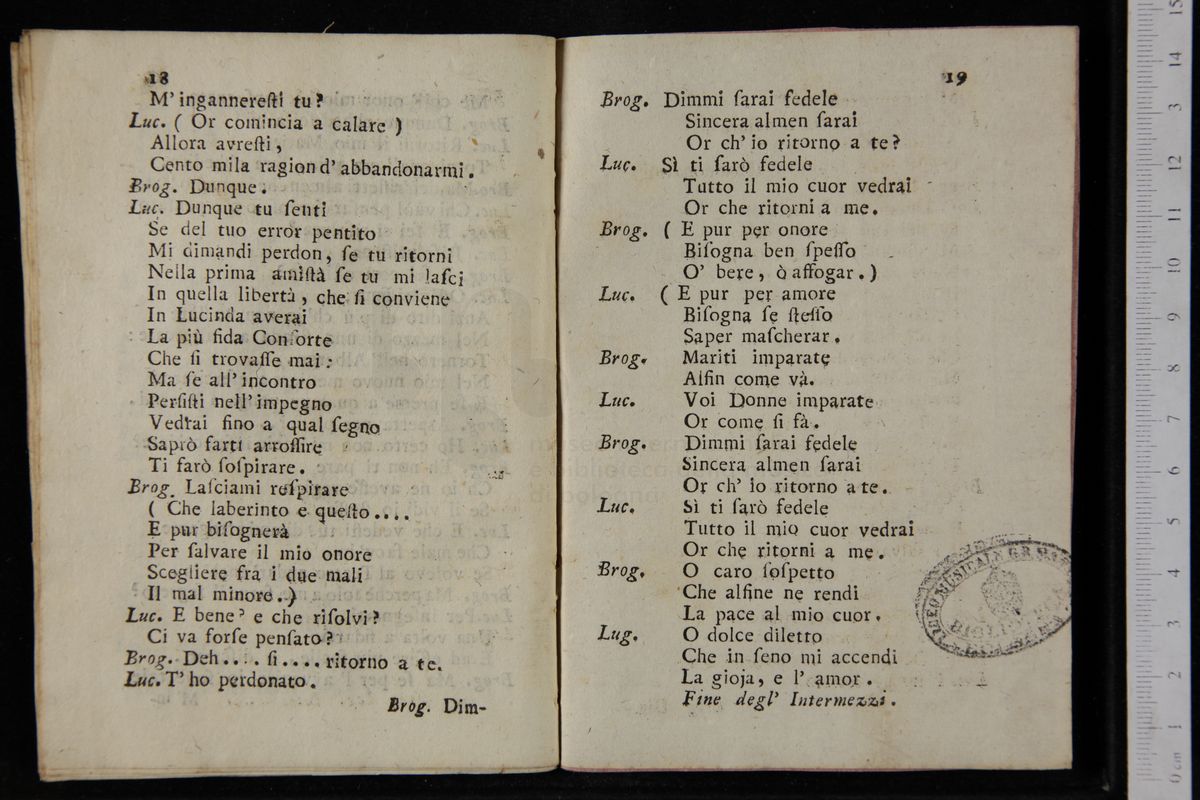 18
M' ingannereſti tu?
Luc. ( Or comincia a calare )
Allora avreſti,
Cento mila ragion d' abbandonarmi.
Brog. Dunque.
Luc. Dunque tu ſenti
Se del tuo error pentito
Mi dimandi perdon, ſe tu ritorni
Nella prima amiſtà ſe tu mi laſci
In quella libertà, che ſi conviene
In Lucinda averai
La più fida Conſorte
Che ſi trovaſſe mai:
Ma ſe all' incontro
Perſiſti nell' impegno
Vedrai fino a qual ſegno
Saprò farti arroſſire
Ti farò ſoſpirare.
Brog. Laſciami reſpirare
( Che laberinto e queſto....
E pur biſognerà
Per ſalvare il mio onore
Scegliere fra i due mali
Il mal minore..)
Luc. E bene? e che riſolvi?
Ci va forſe penſato?
Brog. Deh.... ſi.... ritorno a te.
Luc. T' ho perdonato.
Brog. Dim-
19
Brog. Dimmi ſarai fedele
Sincera almen ſarai
Or ch' io ritorno a te?
Luc. Sì ti ſarò fedele
Tutto il mio cuor vedrai
Or che ritorni a me.
Brog. ( E pur per onore
Biſogna ben ſpeſſo
O' bere, ò affogar.)
Luc. ( E pur per amore
Biſogna ſe ſteſſo
Saper maſcherar.
Brog. Mariti imparate
Alfin come và.
Luc. Voi Donne imparate
Or come ſi fà.
Brog. Dimmi ſarai fedele
Sincera almen ſarai
Or ch' io ritorno a te.
Luc. Sì ti ſarò fedele
Tutto il mio cuor vedrai
Or che ritorni a me.
Brog. O caro ſoſpetto
Che alfine ne rendi
La pace al mio cuor.
Lug. O dolce diletto
Che in ſeno mi accendi
La gioja, e l' amor.
Fine degl' Intermezzi.
LICEO MUSICALE